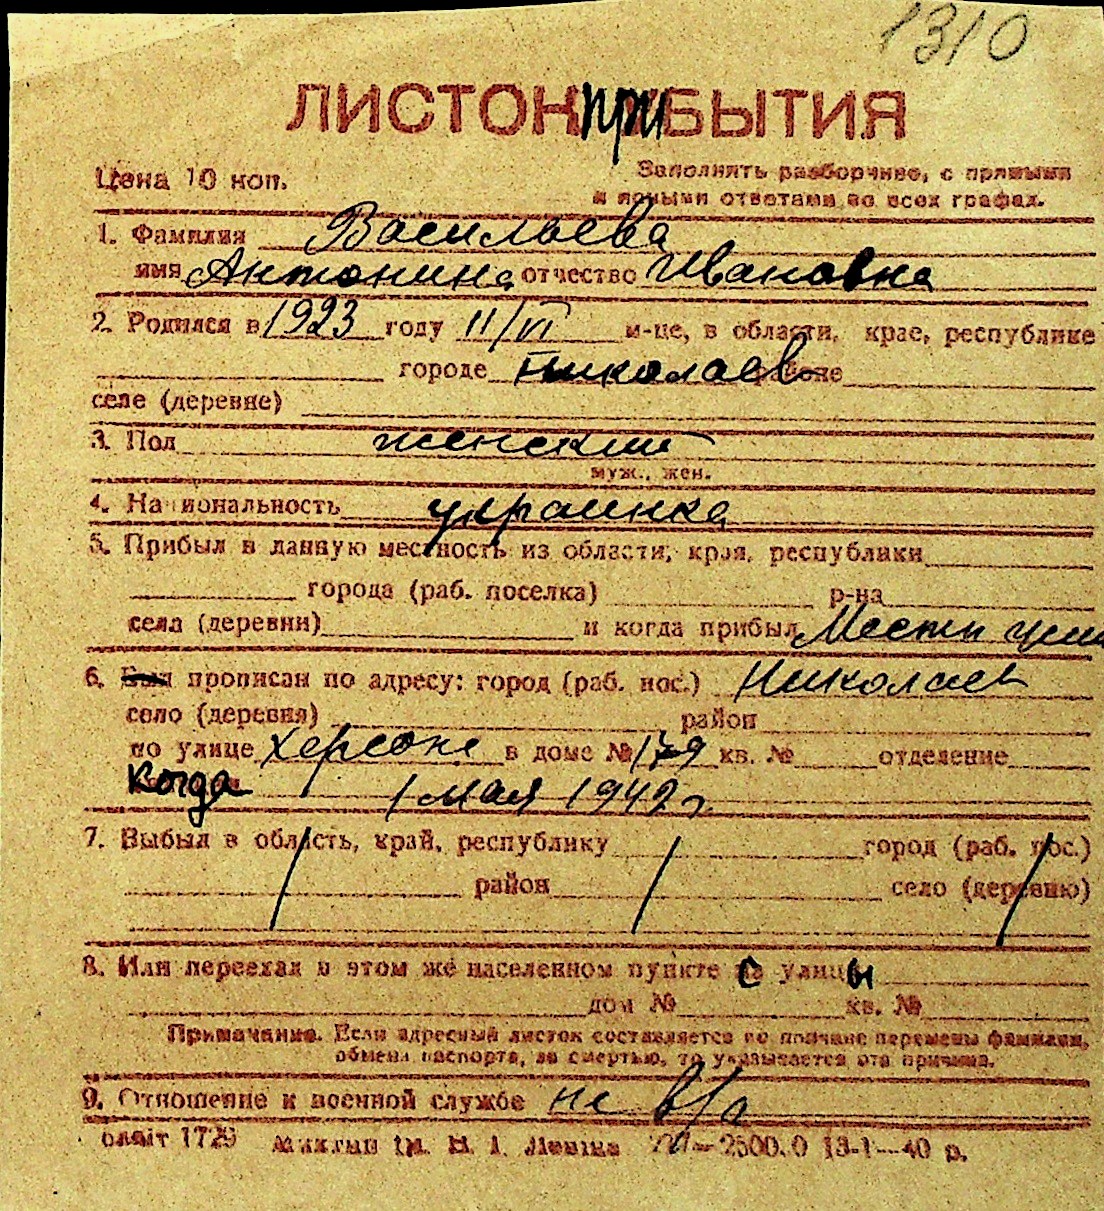 1310
ЛИСТОК ПРИБЫТИЯ
Цена 10 коп.
Заполнять разборчиво, с прямыми
и ясными ответами во всех графах.
1. Фамилия Васильева
имя Антонина отчество Ивановна
2. Родился в 1923 году 11/VI м-це, в области, крае, республике
городе Николаев районе
селе (деревне)
3. Пол женский
муж., жен.
4. Национальность украинка
5. Прибыл в данную местность из области, края, республики
города (раб. поселка) р-на
села (деревни) и когда прибыл Местн
6. Был прописан по адресу: город (раб. пос.) Николаев
село (деревня) район
по улице Херсонс в доме № 179 кв. № отделение
Когда 1 мая 1942 г.
7. Выбыл в область, край, республику город (раб. пос.)
район село (деревню)
8. Или переехал в этом же населенном пункте с улицы
дом № кв. №
Примечание. Если адресный листок составляется по причине перемены фамилии,
обмена паспорта, за смертью, то указывается эта причина.
9. Отношение к военной службе не в/о
1729 ім. В. І. Леніна 13-1—40 р.